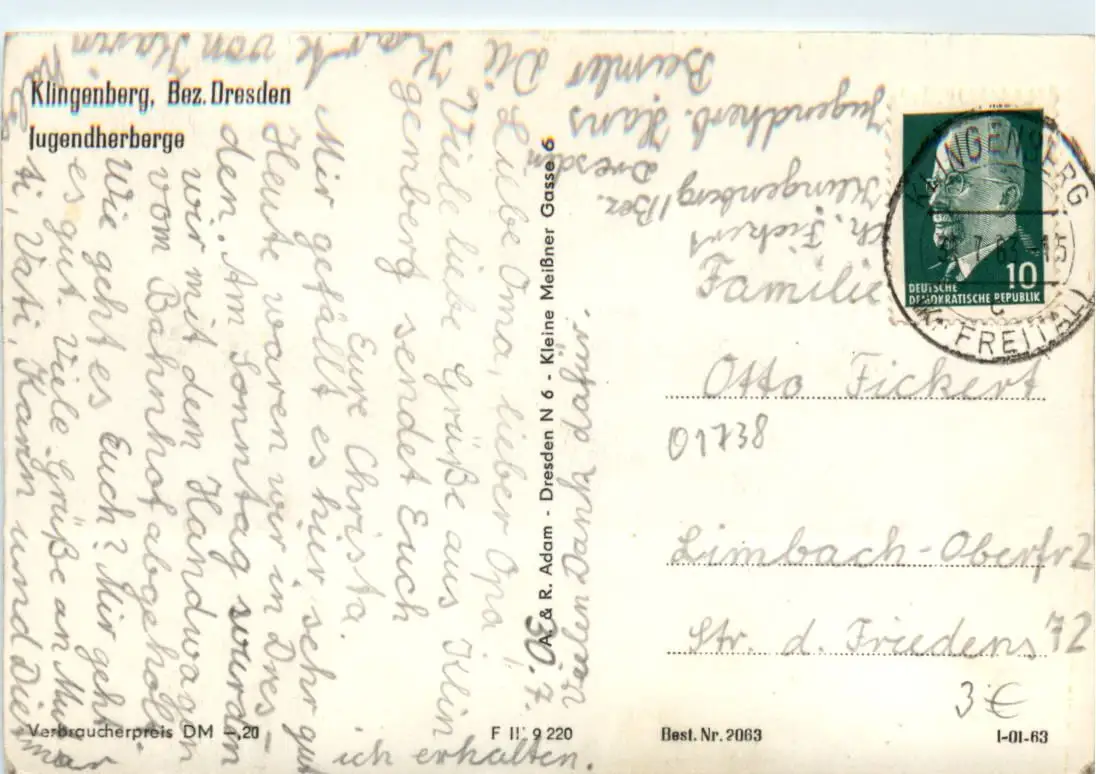 Klingenberg, Bez. Dresden
Jugendherberge
30. 7.
Liebe Oma, lieber Opa!
Viele liebe Grüße aus Klin
genberg sendet Euch
Eure Christa.
Mir gefällt es hier sehr gut
Heute waren wir in Dres-
den. Am Sonntag wurden
wir mit dem Handwagen
vom Bahnhof abgeholt.
Wie geht es Euch? Mir geht
es gut. Viele Grüße an Mut
ti, Vati, Karin und Dietmar
Die Karte von Karin
ich erhalten.
Vielen Dank dafür.
A. & R. Adam - Dresden N 6 - Kleine Meißner Gasse 6
Ch. Fickert
Klingenberg/Bez.
Dresden
Jugendherb. Hans
Beimler
DEUTSCHE
DEMOKRATISCHE REPUBLIK
10
KLINGENBERG
7.63-15
c
FREITAL
Familie
Otto Fickert
01738
Limbach-Oberfr 2
Str. d. Friedens 72
3 €
Verbraucherpreis DM -,20
F 9 220
Best. Nr. 2063
I-01-63